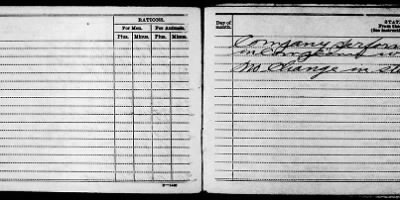 RATIONS.
For Men. For Animals.
Plus. Minus. Plus. Minus.
Day of month.
STAT
From the
(See Instruct
Company perform
in
No change in sta